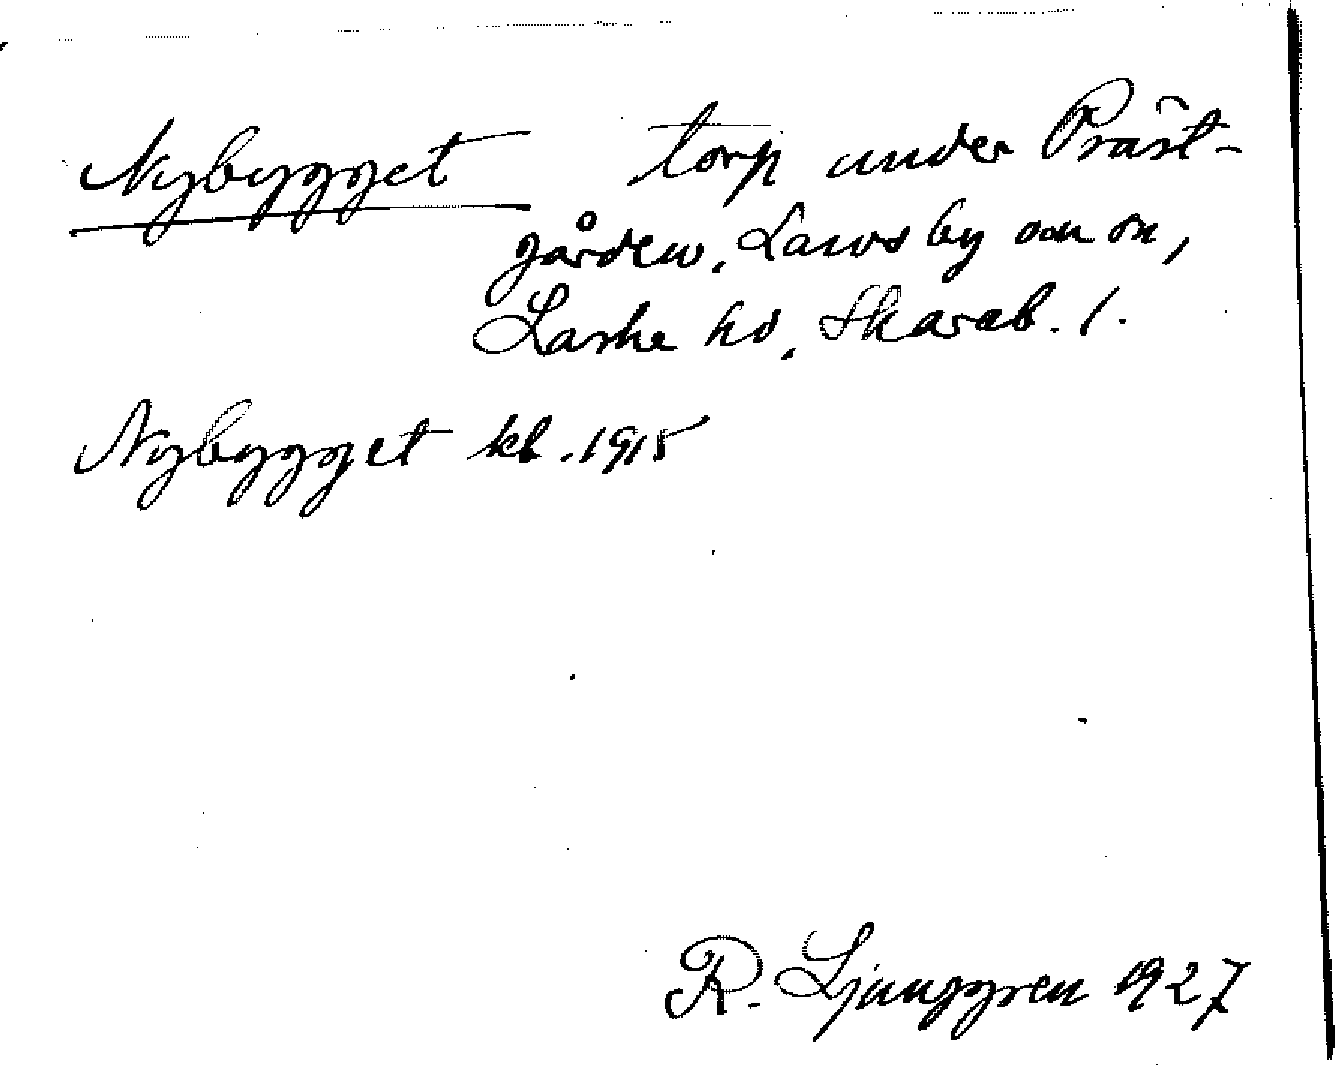 Nybygget torp under Präst-
gården, Larvs by och sn,
Laske hd, Skarab. l.
Nybygget kb. 1915
R. Ljunggren 1927